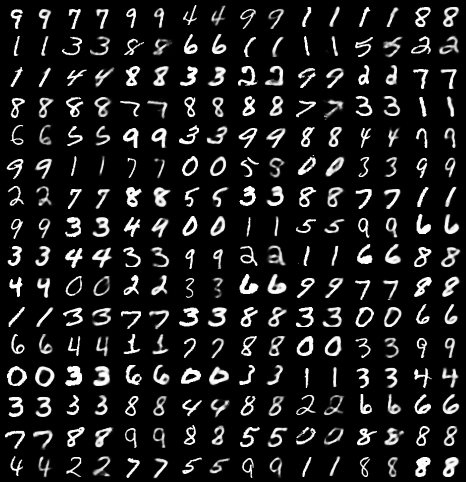 9 9 7 7 9 9 4 4 9 9 1 1 1 1 8 8
1 1 3 3 8 8 6 6 1 1 1 1 5 5 2 2
1 1 4 4 8 8 3 3 2 2 9 9 2 2 7 7
8 8 8 8 7 7 8 8 8 8 7 7 3 3 1 1
6 6 5 5 9 9 3 3 9 9 8 8 4 4 7 7
9 9 1 1 7 7 0 0 5 8 0 0 3 3 9 9
2 2 7 7 8 8 5 5 3 3 8 8 7 7 1 1
9 9 3 3 4 9 0 0 1 1 5 5 9 9 6 6
3 3 4 4 3 3 9 9 2 2 1 1 6 6 8 8
4 4 0 0 2 2 3 3 6 6 9 9 7 7 8 8
1 1 3 3 7 7 3 3 8 8 3 3 0 0 6 6
6 6 4 4 1 1 7 7 8 8 0 0 3 3 9 9
0 0 3 3 6 6 0 0 3 3 1 1 3 3 4 4
3 3 3 3 8 8 4 4 8 8 2 2 6 6 6 6
7 7 8 8 9 9 8 8 5 5 0 0 8 8 8 8
4 4 2 2 7 7 5 5 9 9 1 1 8 8 8 8